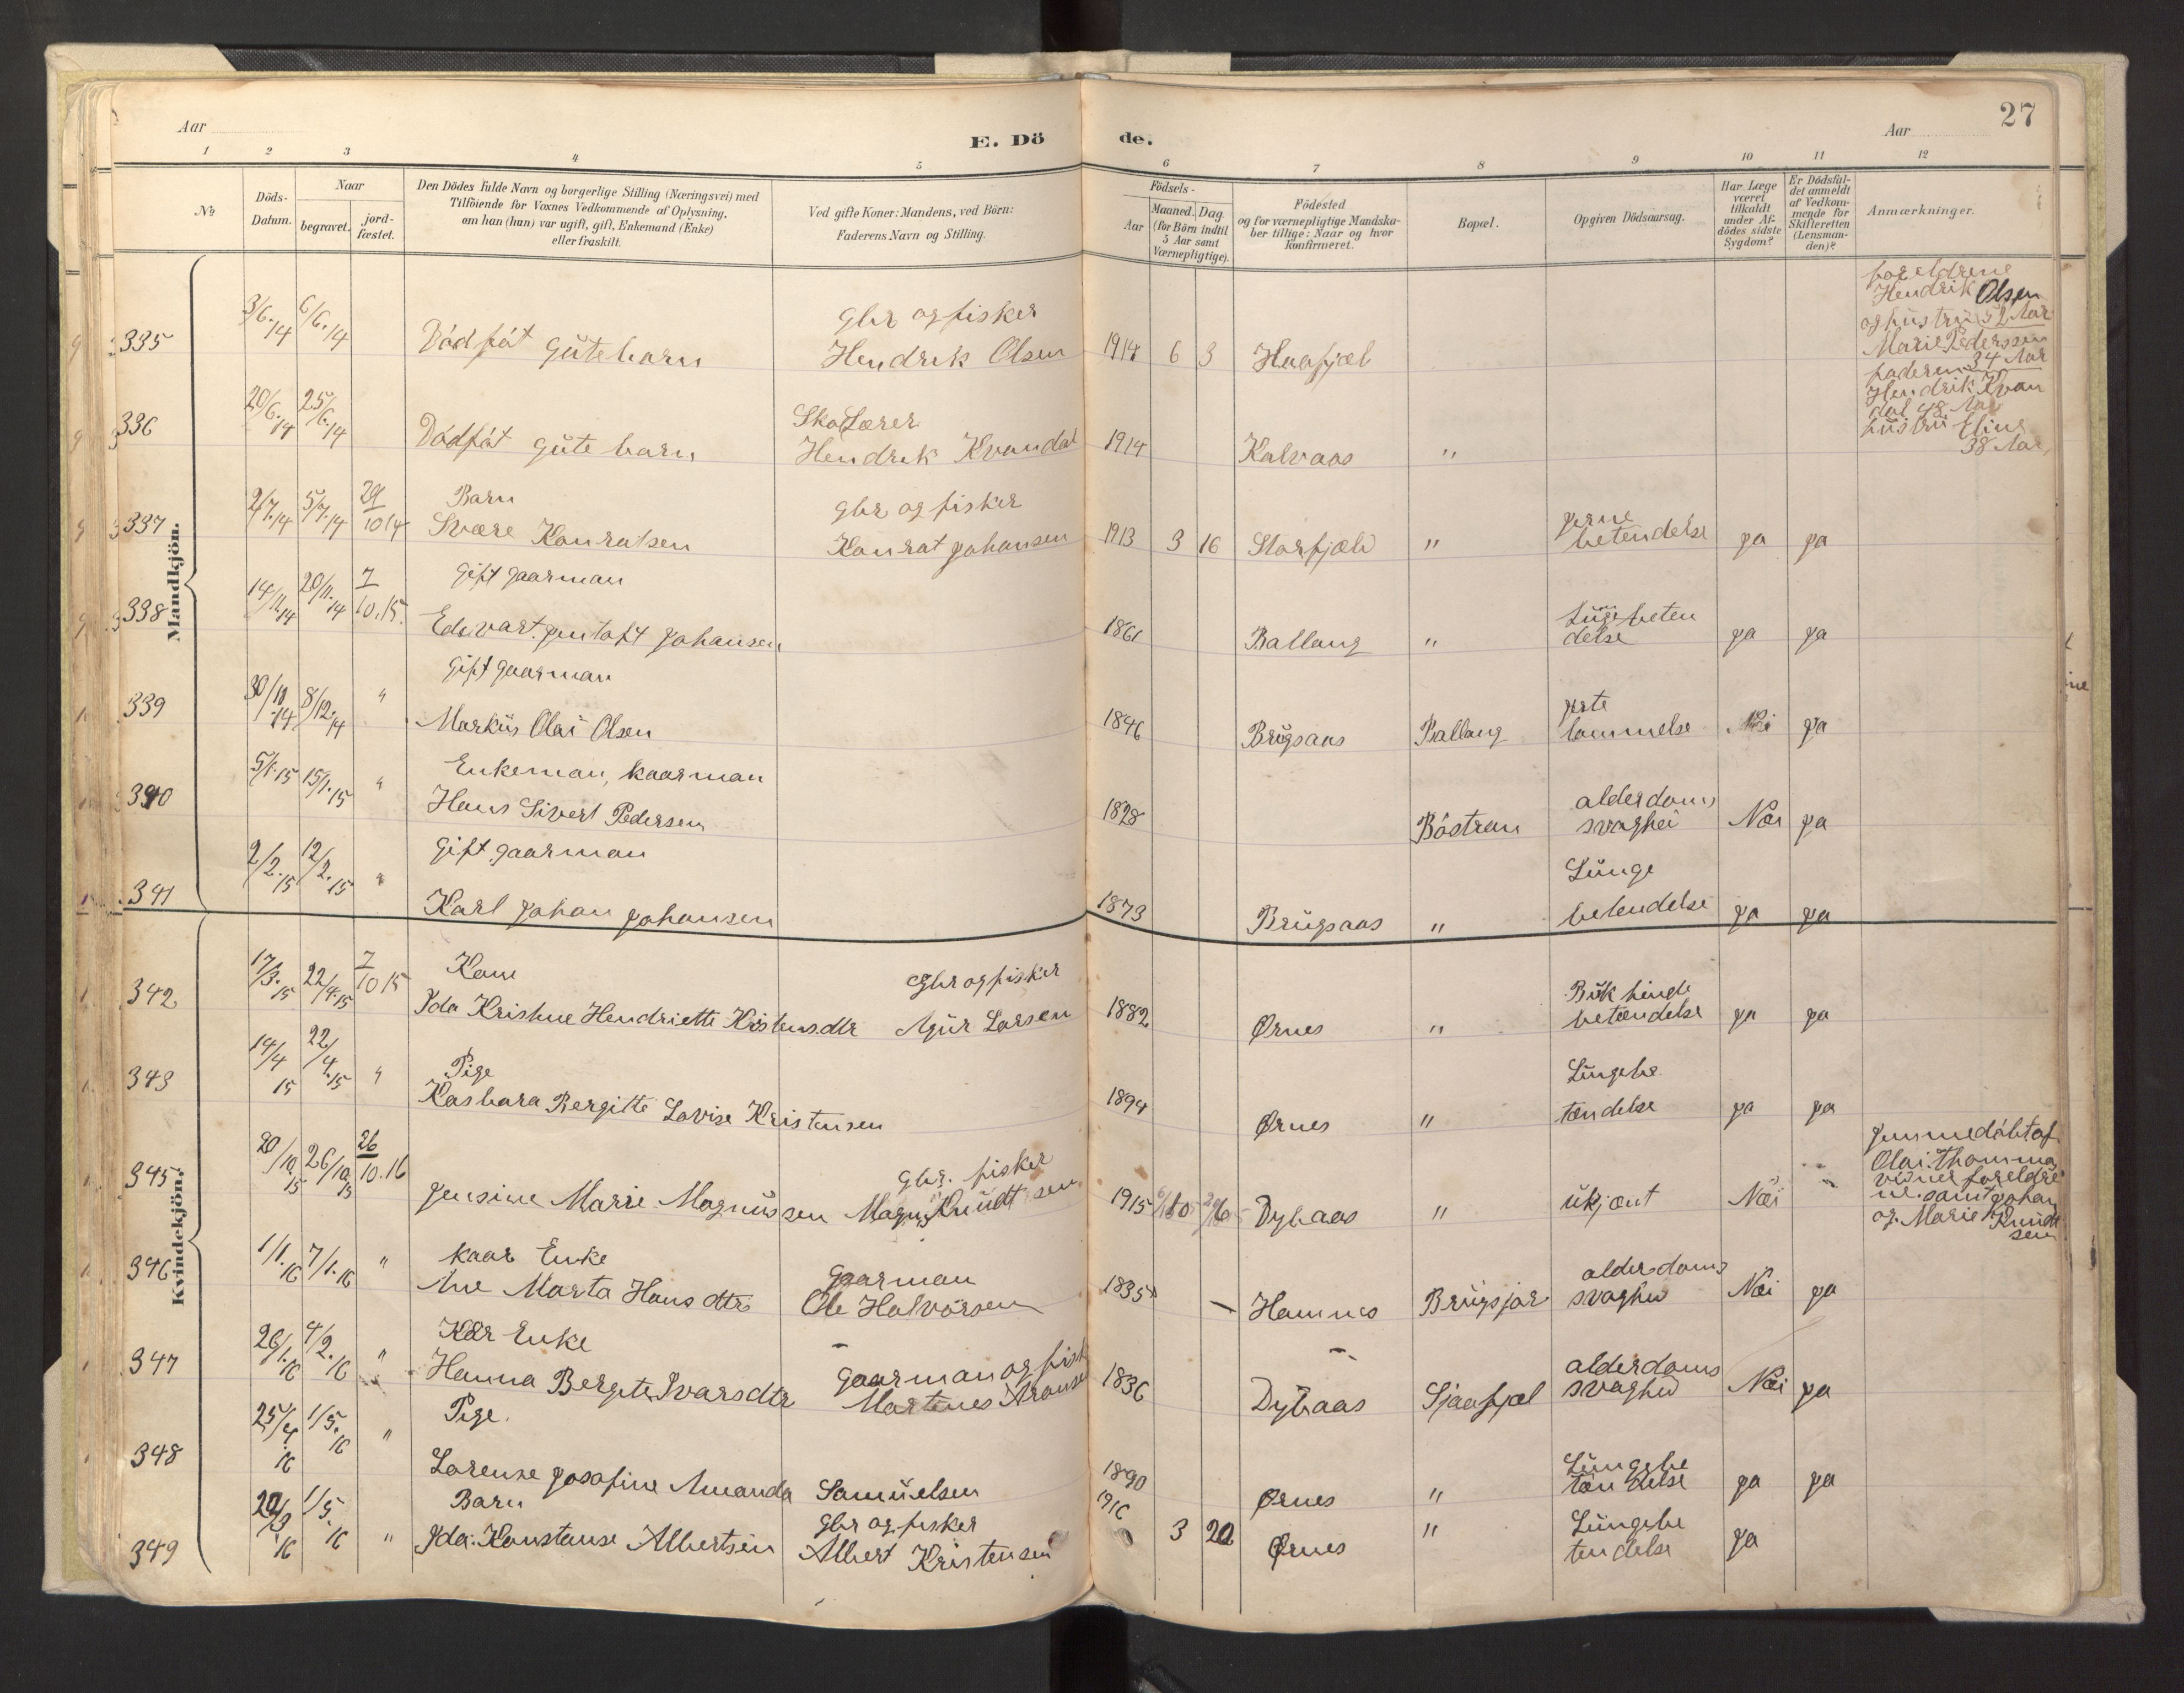 27
Aar
E. Dö de.
Aar
1 2 3 4 5 6 7 8 9 10 11 12
№
Döds-Datum.
Naar
begravet.
jord-fæstet.
Den Dödes fulde Navn og borgerlige Stilling (Næringsvei) med
Tilföiende for Voxnes Vedkommende af Oplysning,
om han (hun) var ugift, gift, Enkemand (Enke)
eller fraskilt.
Ved gifte Koner: Mandens, ved Börn:
Faderens Navn og Stilling.
Födsels-
Aar
Maaned. Dag.
(for Börn indtil
5 Aar samt
Værnepligtige).
Födested
og for værnepligtige Mandska-
ber tillige: Naar og hvor
konfirmeret.
Bopæl.
Opgiven Dödsaarsag.
Har Læge
været
tilkaldt
under Af-
dödes sidste
Sygdom?
Er Dödsfal-
det anmeldt
af Vedkom-
mende for
Skifteretten
(Lensman-
den)?
Anmærkninger.
Mandkjön.
335 3/6.14 6/6.14 Dödföt Gutebarn
gbr og fisker
Hendrik Olsen 1914 6 3 Haafjæl
foreldrene
Hendrik Olsen
og hustru 52 Aar
Marie Pederssen
34 Aar
336 20/6.14 25/6.14 Dödföt gutebarn
Skolærer
Hendrik Kvandal 1914 Kalvaas "
faderen
Hendrik Kvan
dal 48 Aar
hustru Eline
38 Aar
337 2/7.14 5/7.14 29/10 14 Barn
Svære Konratsen
gbr og fisker
Konrat Johansen 1913 3 16 Storfjæld "
jerne
betendelse ja ja
338 14/11.14 20/11.14 7/10.15. Gift gaarman
Edevart Johansen 1861 Ballang "
Lungebeten
delse ja ja
339 8/12.14 " Gift gaarman
Markus Olai Olsen 1846 Brugsaas Ballang
jerte
lammelse Næi ja
340 5/1.15 15/1.15 " Enkeman, kaarman
Hans Sivert Pedersen 1828 Böstran
alderdoms
svaghei Næi ja
341 2/2.15 12/2.15 " Gift gaarman
Karl Johan Johansen 1873 Brugsaas "
Lunge
betendelse ja ja
Kvindekjön.
342 17/3.15 22/4.15 7/10 15 Kone
Ida Kristine Hendriette Kristensdtr
Gbr og fisker
Agur Larsen 1882 Ørnes "
Bukhinde
betændelse ja ja
343 14/4 15 22/4.15 " Pige
Kasbara Bergitte Lovise Kristensen 1894 Ørnes "
Lungebe
tændelse ja ja
345 20/10 15 26/10 15 26/10.16
Jensine Marie Magnussen
Gbr. fisker
Magnus Knudtsen 1915 Dybaas " ukjænt Næi
jemmedöbt af
Olai Thommas
vidner foreldre
ne samt Johan
og Marie Knudt
sen
346 1/1.16 7/1.16 " kaar Enke
Ane Marta Hansdtr
Gaarman
Ole Halvorsen 1835 Hamnes Brugsjor
alderdoms
svaghed Næi ja
347 26/1.16 4/2.16 " Kår Enke
Hanna Bergete Ivarsdtr
gaarman og fisk
Martenes 1836 Dybaas Sjaafjel
alderdoms
svaghed Næi ja
348 25/4 16 1/5.16 " Pige.
Lorense Josofine Amanda Samuelsen 1890 Ørnes "
Lungebe
tændelse ja ja
349 1/5.16 " Barn
Ida Konstanse Albertsen
gbr og fisker
Albert Kristensen 1916 3 20 Ørnes "
Lungebe
tendelse ja